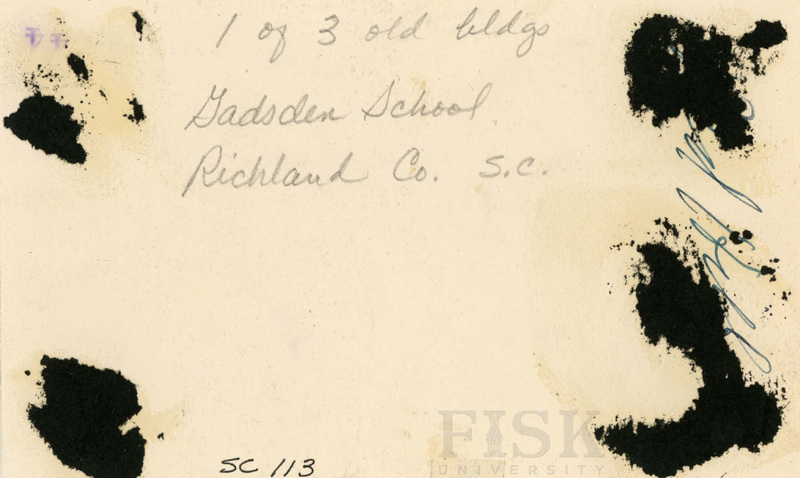 1 of 3 old bldgs
Gadsden School
Richland Co. S.C.
SC 113
FISK
UNIVERSITY